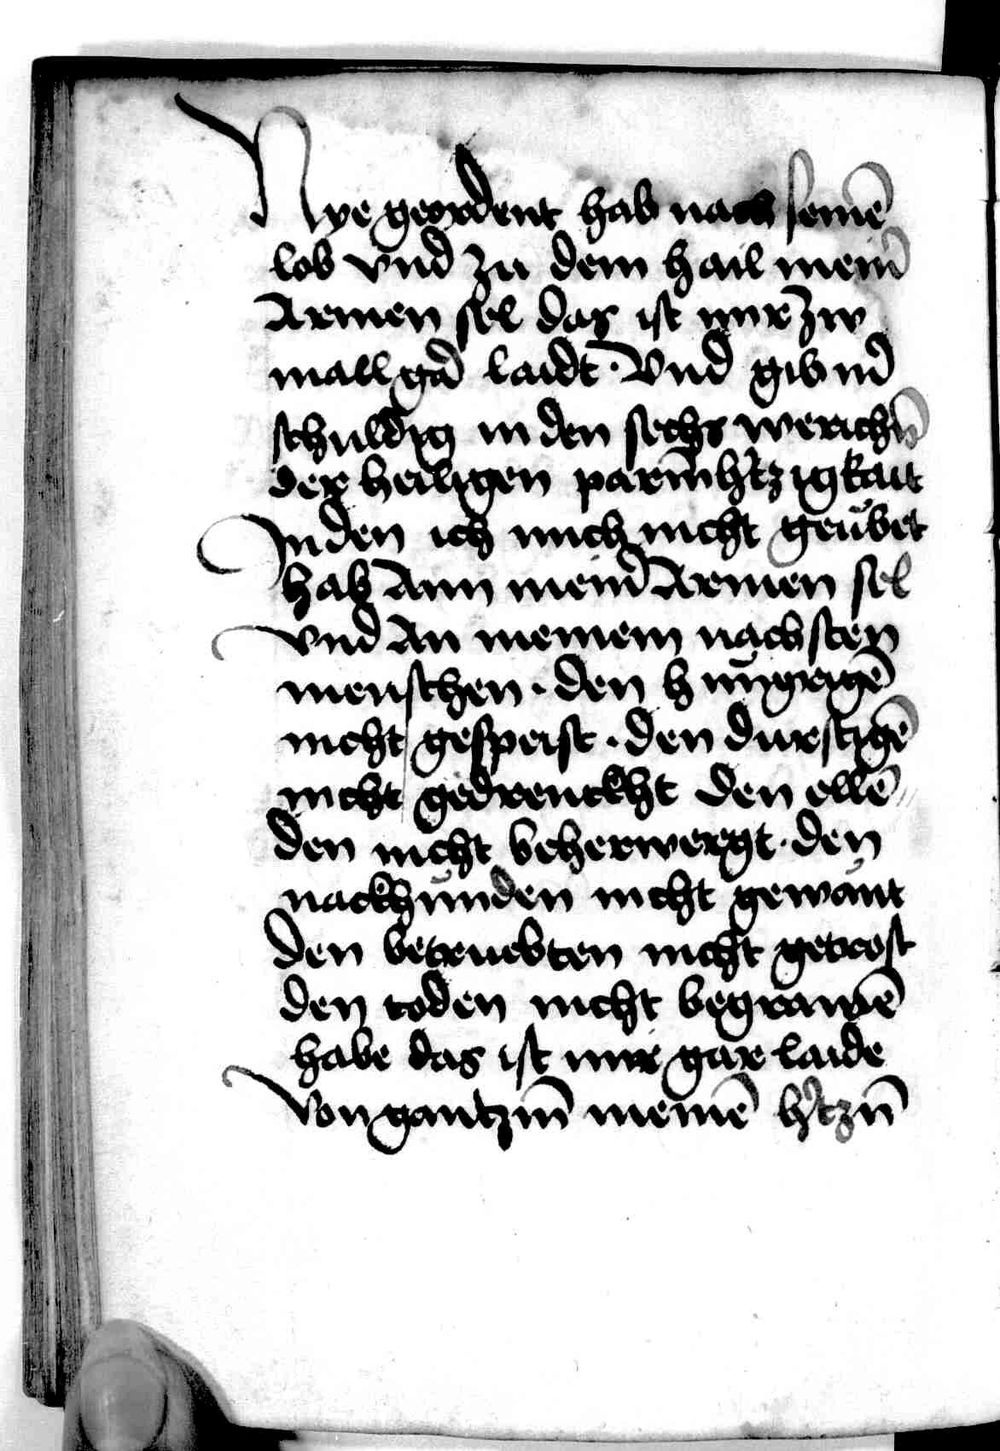 Nye geordent hab nach seinē
lob vnd zu dem hail mein̄
Armen sel das ist mir zw
mall gar laidt · Vnd gib mich
schuldig in den sechs werichn̄
der heiligen parm̄hˀtzigkait
In den ich mich nicht geübet
hab Ann mein̄ Armen sel
vnd An meinem nachsten
menschen · den hungrigē
nicht gespeist · den durstigē
nicht gedrenckht den ellē
den nicht beherwergt · den
nackhunden nicht gewant
den betruebten nicht getrost
den toden nicht begrawē
habe das ist mir gar laide
von gantzm̄ meinē hˀtzn̄